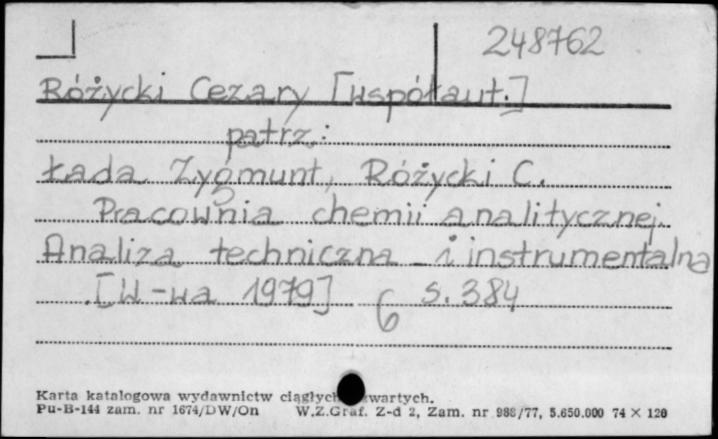 248762
Różycki Cezary [współaut.]
patrz:
Łada Zygmunt, Różycki C.
Pracownia chemii analitycznej.
Analiza techniczna i instrumentalna
.[W-wa 1979] 6 s. 384
Karta katalogowa wydawnictw ciągłych
Pu-B-144 zam. nr 1674/DW/On W.Z.Graf. Z-d 2, Zam. nr 988/77, 5.650.000 74 × 120